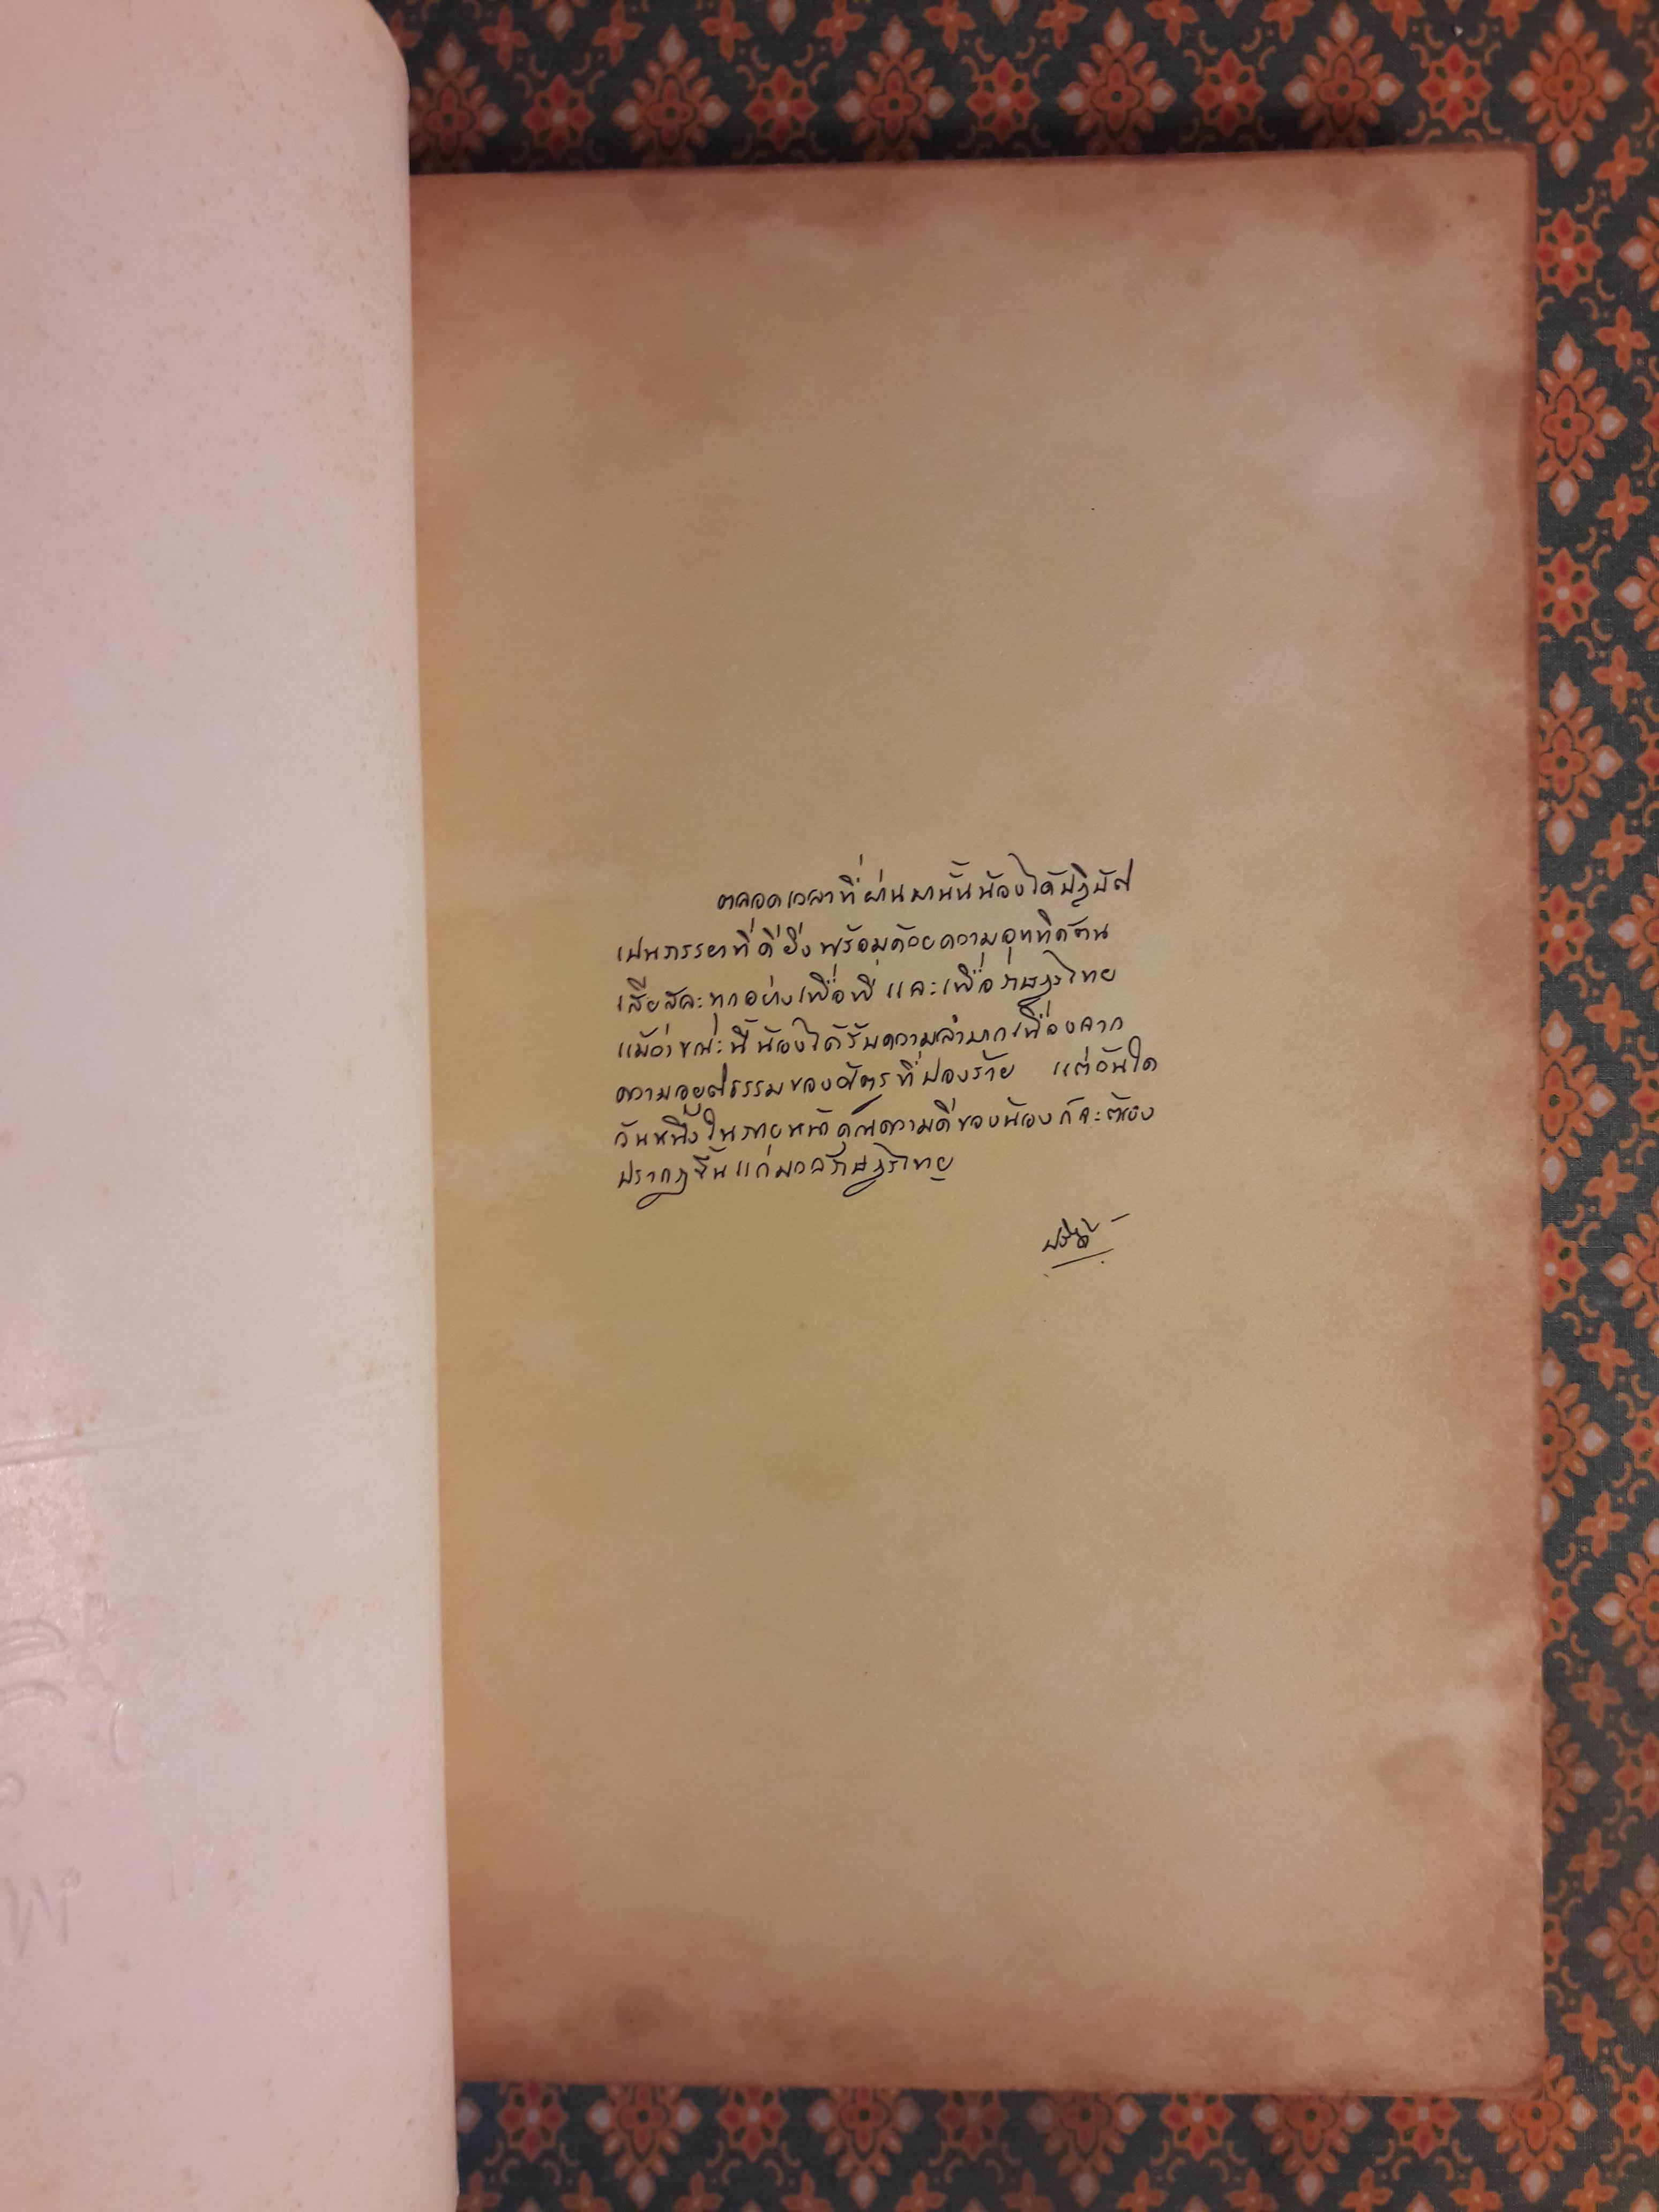 ตลอดเวลาที่ผ่านมานั้นน้องได้ปฏิบัติ
เปนภรรยาที่ดียิ่งพร้อมด้วยความอุททิศตน
เสียสละทุกอย่างเพื่อพี่และเพื่อราษฎรไทย
แม้ว่าขณะนี้น้องได้รับความลำบากเนื่องจาก
ความอยุติธรรมของศัตรูที่ปองร้าย แต่วันใด
วันหนึ่งในภายหน้าคุณความดีของน้องก็จะต้อง
ปรากฏขึ้นแก่มวลราษฎรไทย
ปรีดี